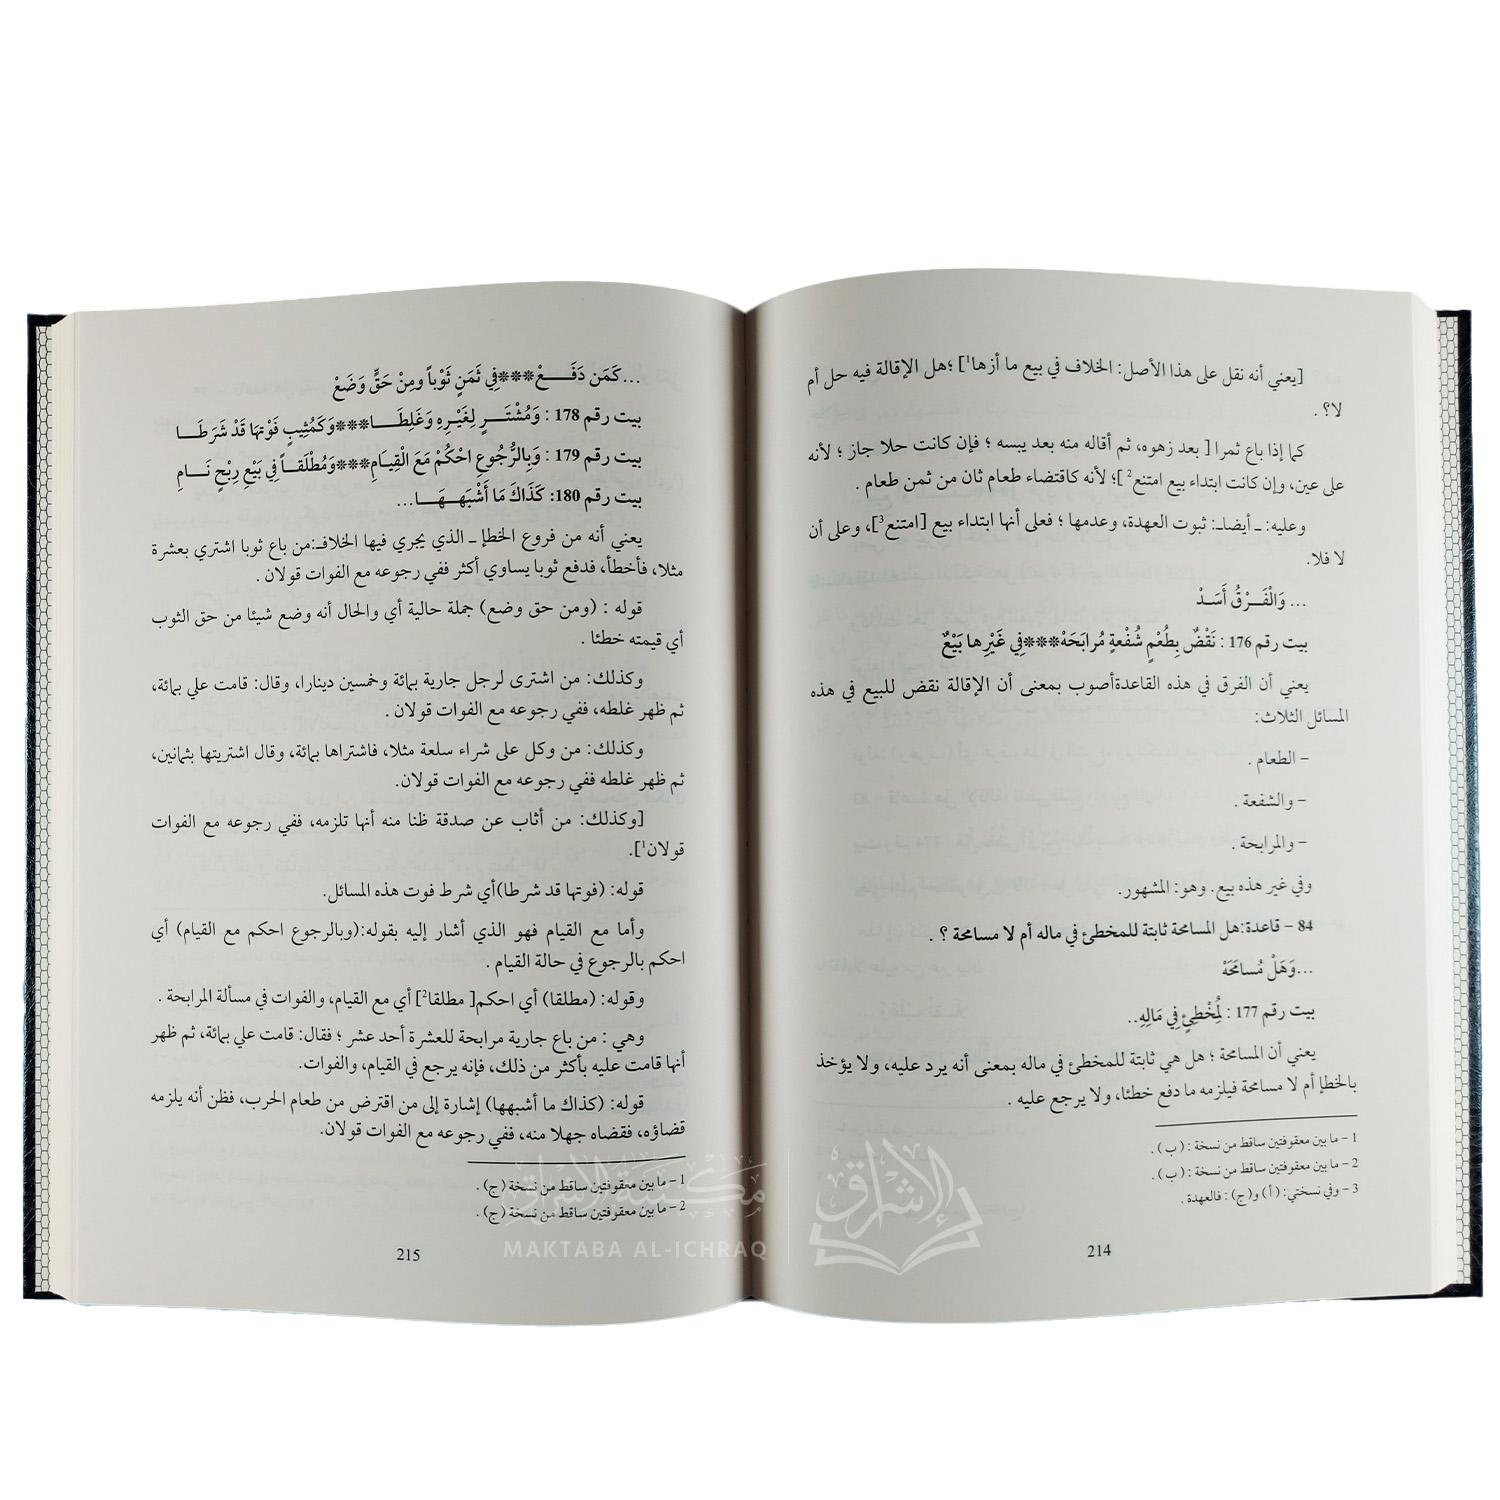 [يعني أنه نقل على هذا الأصل: الخلاف في بيع ما أزها¹] ؛هل الإقالة فيه حل أم
لا؟ .
كما إذا باع ثمرا [ بعد زهوه، ثم أقاله منه بعد يبسه ؛ فإن كانت حلا جاز ؛ لأنه
على عين، وإن كانت ابتداء بيع امتنع² ]؛ لأنه كاقتضاء طعام ثان من ثمن طعام .
وعليه: ـ أيضاـ: ثبوت العهدة، وعدمها ؛ فعلى أنها ابتداء بيع [امتنع³]، وعلى أن
لا فلا.
... وَالْفَـــرْقُ أَسَـدْ
بيت رقم 176 : نَقْضٌ بِطُعْمٍ شُفْعةٍ مُرابَحَهْ***فِي غَيْرِها بَيْعٌ
يعني أن الفرق في هذه القاعدةأصوب بمعنى أن الإقالة نقض للبيع في هذه
المسائل الثلاث:
– الطعام .
– والشفعة .
– والمرابحة .
وفي غير هذه بيع. وهو: المشهور.
84 – قاعدة:هل المسامحة ثابتة للمخطئ في ماله أم لا مسامحة ؟ .
...وَهَلْ مُسامَحَهْ
بيت رقم 177 : لِمُخْطِئٍ فِي مَالِهِ..
يعني أن المسامحة ؛ هل هي ثابتة للمخطئ في ماله بمعنى أنه يرد عليه، ولا يؤخذ
بالخطإ أم لا مسامحة فيلزمه ما دفع خطئا، ولا يرجع عليه .
1 – ما بين معقوفتين ساقط من نسخة : ( ب ) .
2 – ما بين معقوفتين ساقط من نسخة : ( ب ) .
3 – وفي نسختي: ( أ ) و(ج) : فالعهدة .
214
...كَمَن دَفَـــــعْ***فِي ثَمَنٍ ثَوْباً ومِنْ حَقٍّ وَضَعْ
بيت رقم 178 : وَمُشْتَـــــرٍ لِغَيْرِهِ وَغَلِطَـــا***وَكَمُثِيبٍ فَوْتها قَدْ شَرَطَـــا
بيت رقم 179 : وَبِالرُّجُوعِ احْكُمْ مَعَ الْقِيَامِ***وَمُطْلَقــاً فِي بَيْعِ رِبْحٍ نَـــامِ
بيت رقم 180: كَذَاكَ مَا أَشْبَهَـــهَـــا...
يعني أنه من فروع الخطإ ـ الذي يجري فيها الخلافـ:من باع ثوبا اشتري بعشرة
مثلا، فأخطأ، فدفع ثوبا يساوي أكثر ففي رجوعه مع الفوات قولان .
قوله : (ومن حق وضع) جملة حالية أي والحال أنه وضع شيئا من حق الثوب
أي قيمته خطئا .
وكذلك: من اشترى لرجل جارية بمائة وخمسين دينارا، وقال: قامت علي بمائة،
ثم ظهر غلطه، ففي رجوعه مع الفوات قولان .
وكذلك: من وكل على شراء سلعة مثلا، فاشتراها بمائة، وقال اشتريتها بثمانين،
ثم ظهر غلطه ففي رجوعه مع الفوات قولان.
[وكذلك: من أثاب عن صدقة ظنا منه أنها تلزمه، ففي رجوعه مع الفوات
قولان¹].
قوله: (فوتها قد شرطا)أي شرط فوت هذه المسائل.
وأما مع القيام فهو الذي أشار إليه بقوله:(وبالرجوع احكم مع القيام) أي
احكم بالرجوع في حالة القيام .
وقوله: (مطلقا) أي احكم[ مطلقا²] أي مع القيام، والفوات في مسألة المرابحة .
وهي : من باع جارية مرابحة للعشرة أحد عشر ؛ فقال: قامت علي بمائة، ثم ظهر
أنها قامت عليه بأكثر من ذلك، فإنه يرجع في القيام، والفوات.
قوله: (كذاك ما أشبهها) إشارة إلى من اقترض من طعام الحرب، فظن أنه يلزمه
قضاؤه، فقضاه جهلا منه، ففي رجوعه مع الفوات قولان.
1 – ما بين معقوفتين ساقط من نسخة (ج) .
2 – ما بين معقوفتين ساقط من نسخة (ج) .
215
مكتبة الإشراق
MAKTABA AL-ICHRAQ
الإشراق